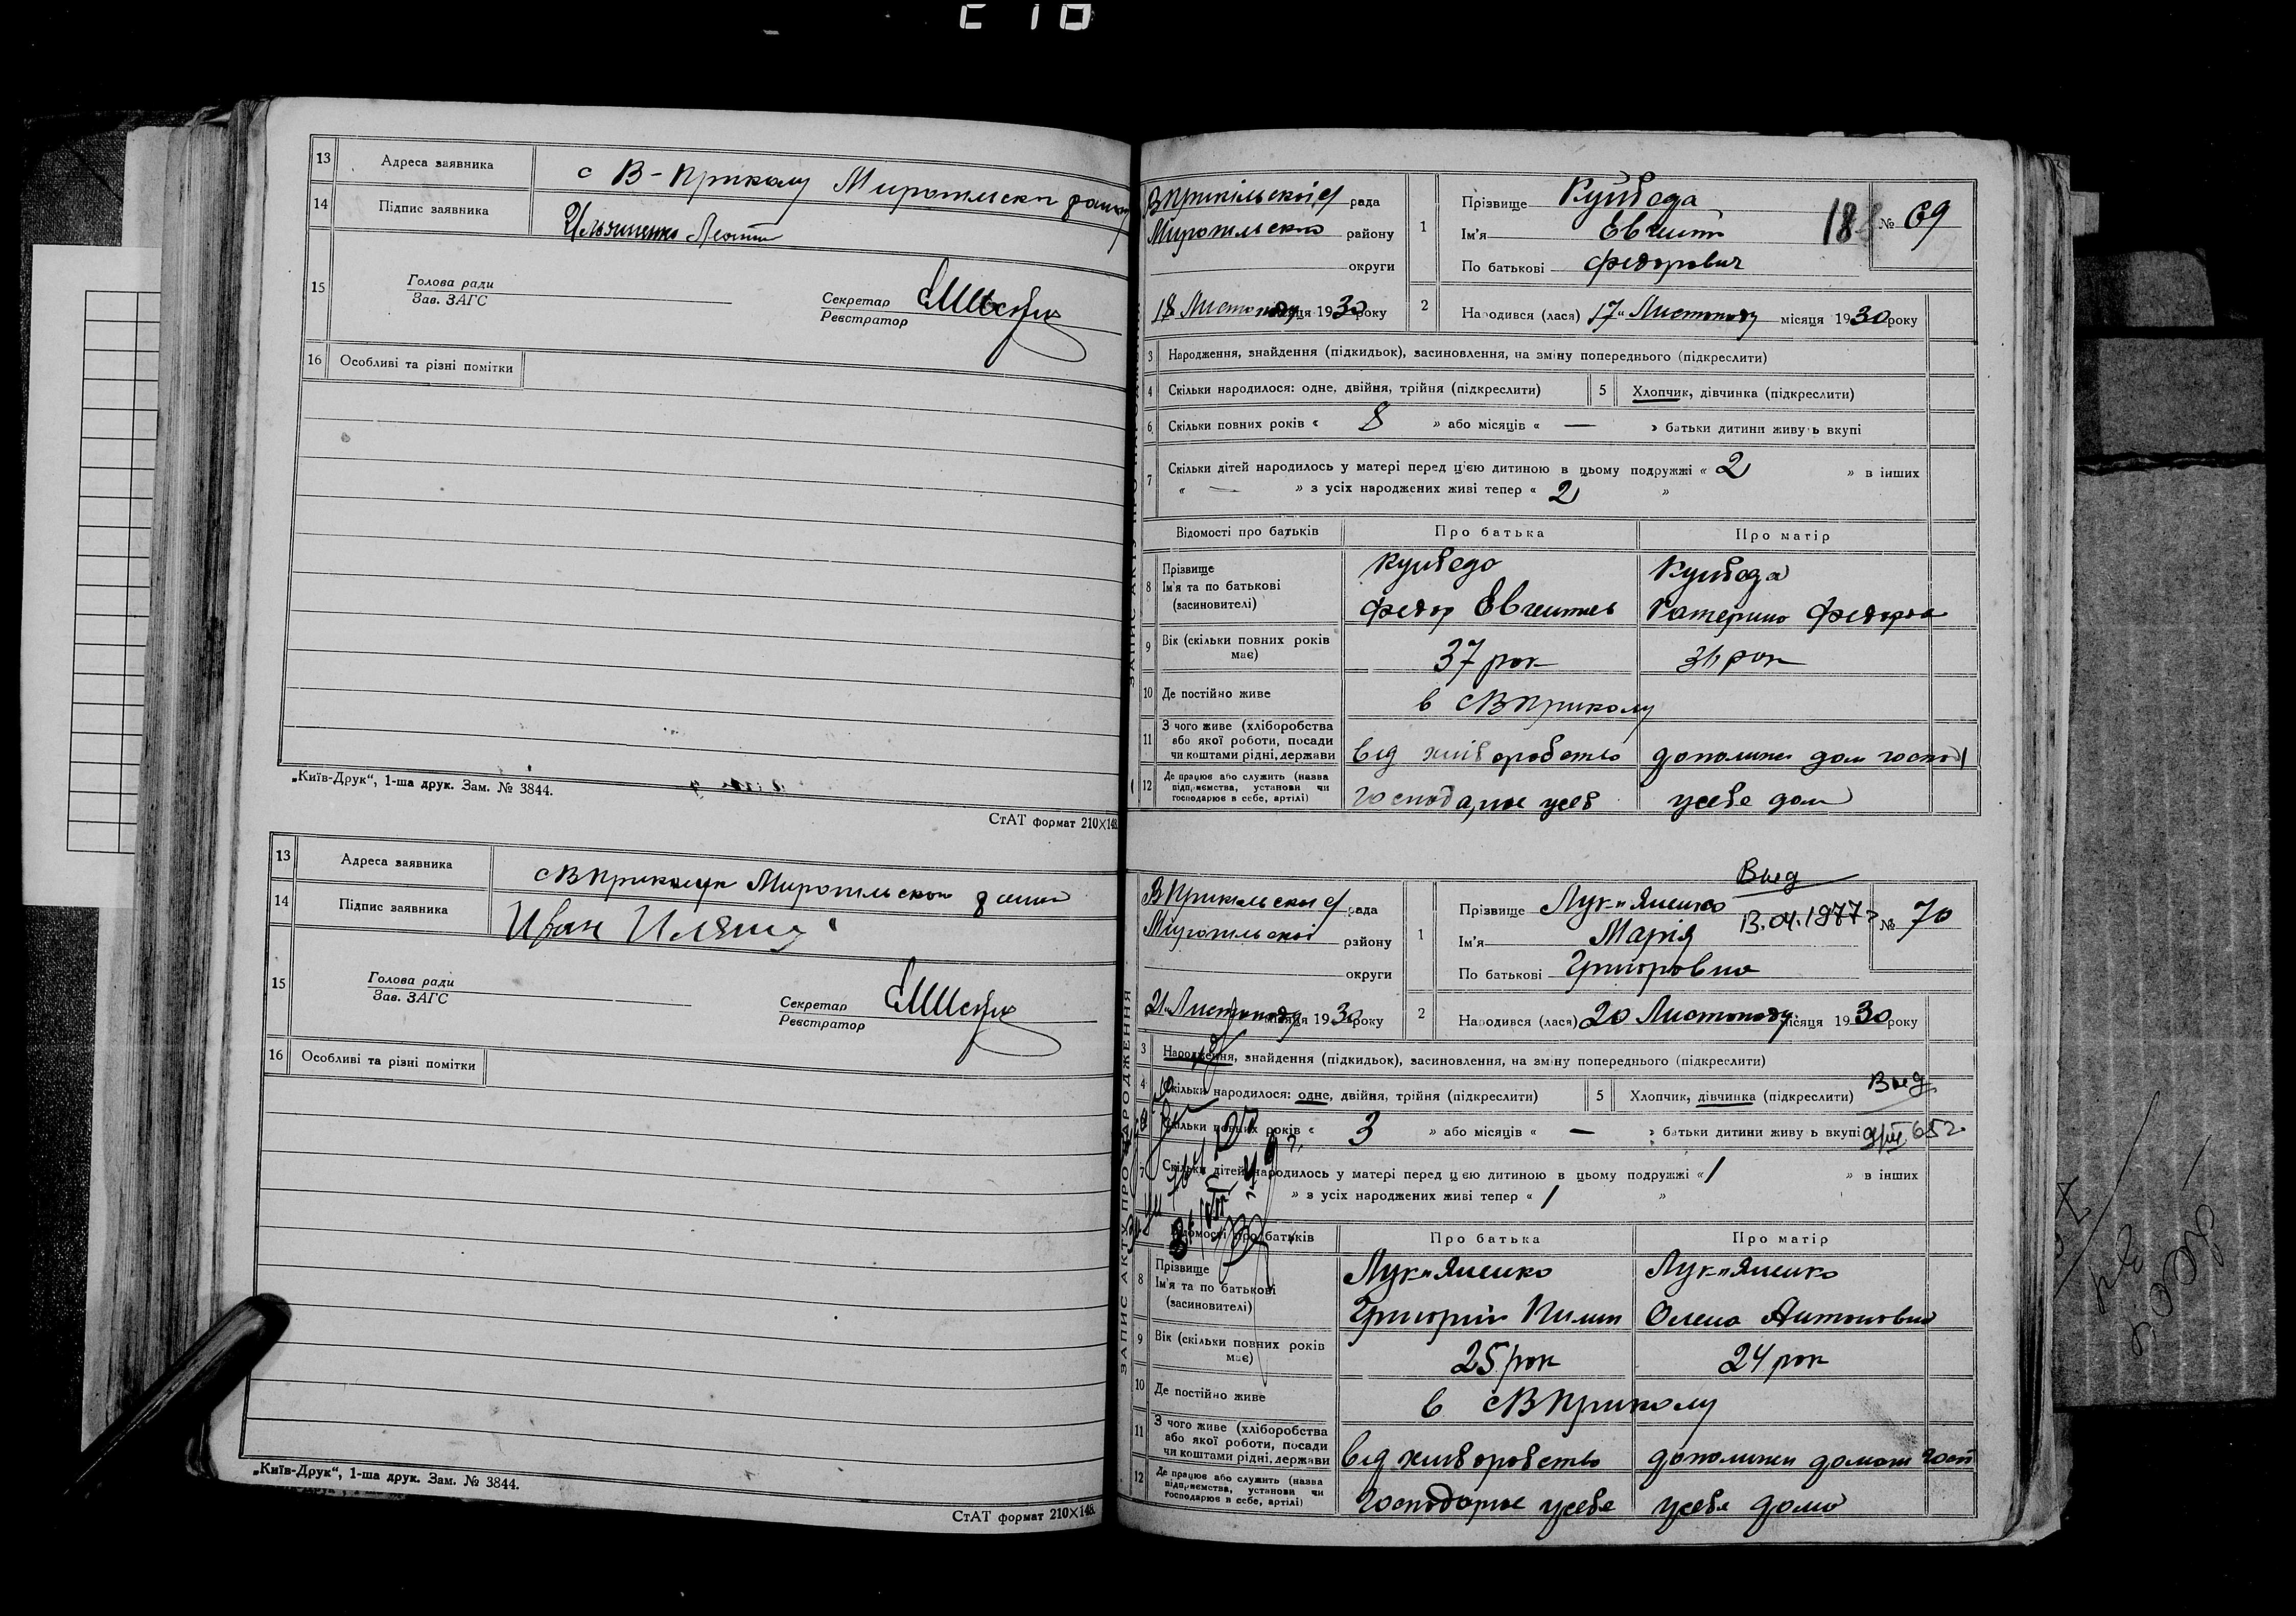 13 Адреса заявника с В-Приколу Миропільськ
14 Підпис заявника Ильяшенко
15 Голова ради
Зав. ЗАГС
Секретар
Реєстратор
16 Особливі та різні помітки
„Київ-Друк“, 1-ша друк. Зам. № 3844.
СтАТ формат 210×148.
13 Адреса заявника с В Прикол Миропільськ
14 Підпис заявника Иван
15 Голова ради
Зав. ЗАГС
Секретар
Реєстратор
16 Особливі та різні помітки
„Київ-Друк“, 1-ша друк. Зам. № 3844.
СтАТ формат 210×148.
ЗАПИС АКТУ ПРО НАРОДЖЕННЯ
В Прикільської рада
Миропільсько району
округи
18 Листопаду місяця 1930 року
1 Прізвище Куйбода
Ім'я Евгений
По батькові Федорович
№ 69
2 Народився (лася) 17 Листопаду місяця 1930 року
3 Народження, знайдення (підкидьок), засиновлення, на зміну попереднього (підкреслити)
4 Скільки народилося: одне, двійня, трійня (підкреслити) 5 Хлопчик, дівчинка (підкреслити)
6 Скільки повних років « 8 » або місяців « — » батьки дитини живуь вкупі
7 Скільки дітей народилось у матері перед цією дитиною в цьому подружжі « 2 » в інших
« — » з усіх народжених живі тепер « 2 »
Відомості про батьків Про батька Про матір
8 Прізвище
Ім'я та по батькові
(засиновителі)
Куйбода Куйбода
Федор Катерина
9 Вік (скільки повних років
має)
37 рок
10 Де постійно живе в с В Приколу
11 З чого живе (хліборобства
або якої роботи, посади
чи коштами рідні, держави
від хліборобство дом
12 Де працює або служить (назва
підприємства, установи чи
господарює в себе, артілі)
Господарює усеб усебе дом
В Прикільської рада
Миропільської району
округи
21 Листопаду місяця 1930 року
1 Прізвище Лук"яненко
Ім'я Марія
По батькові Григоровна
Выд
13.04.1977
№ 70
2 Народився (лася) 20 Листопаду місяця 1930 року
3 Народження, знайдення (підкидьок), засиновлення, на зміну попереднього (підкреслити)
4 Скільки народилося: одне, двійня, трійня (підкреслити) 5 Хлопчик, дівчинка (підкреслити)
Выд
6 Скільки повних років « 3 » або місяців « — » батьки дитини живу ь вкупі
7 Скільки дітей народилось у матері перед цією дитиною в цьому подружжі « 1 » в інших
» з усіх народжених живі тепер « 1 »
Відомості про батьків Про батька Про матір
8 Прізвище
Ім'я та по батькові
(засиновителі)
Лук"яненко Лук"яненко
Григорій Пилип Олена Антоновна
9 Вік (скільки повних років
має)
25 рок 24 рок
10 Де постійно живе в с В Приколу
11 З чого живе (хліборобства
або якої роботи, посади
чи коштами рідні, держави
від хліборобство
12 Де працює або служить (назва
підприємства, установи чи
господарює в себе, артілі)
Господарює усебе усебе дома